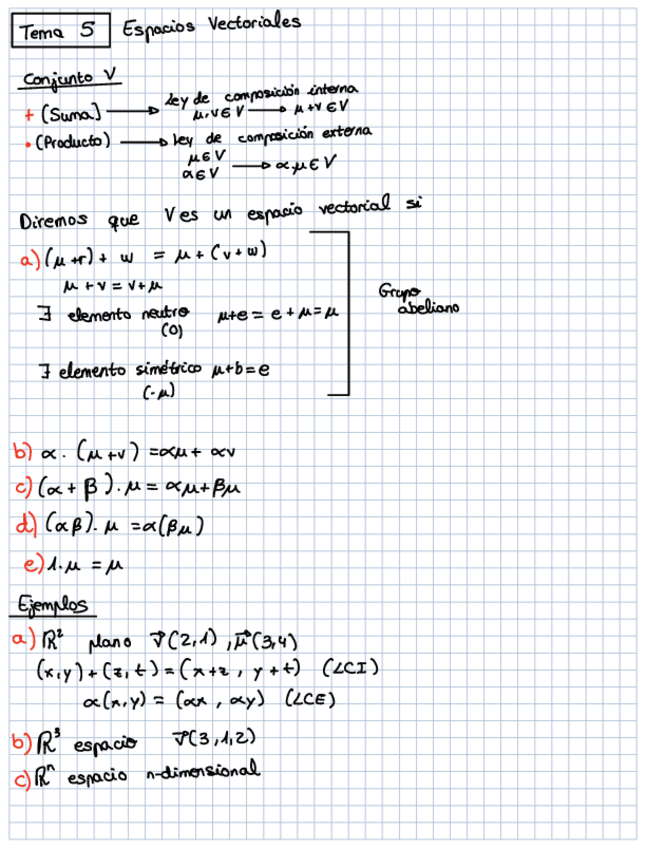 Tema 5 Espacios Vectoriales
Conjunto V
+ (Suma) → Ley de composición interna
μ,v∈V → μ+v∈V
• (Producto) → Ley de composición externa
μ∈V
α∈V → α.μ∈V
Diremos que V es un espacio vectorial si
a) (μ+r)+ w = μ+(v+w)
μ+v = v+μ
∃ elemento neutro μ+e = e+μ=μ
(0)
Grupo
abeliano
∃ elemento simétrico μ+b=e
(-μ)
b) α. (μ+v) =αμ+ αv
c) (α+β).μ= αμ+βμ
d) (αβ). μ =α(βμ)
e) 1.μ = μ
Ejemplos
a) ℝ² plano v⃗(2,1) ,μ⃗(3,4)
(x,y)+(z,t)=(x+z , y+t) (LCI)
α(x,y) = (αx , αy) (LCE)
b) ℝ³ espacio v⃗(3,1,2)
c) ℝⁿ espacio n-dimensional